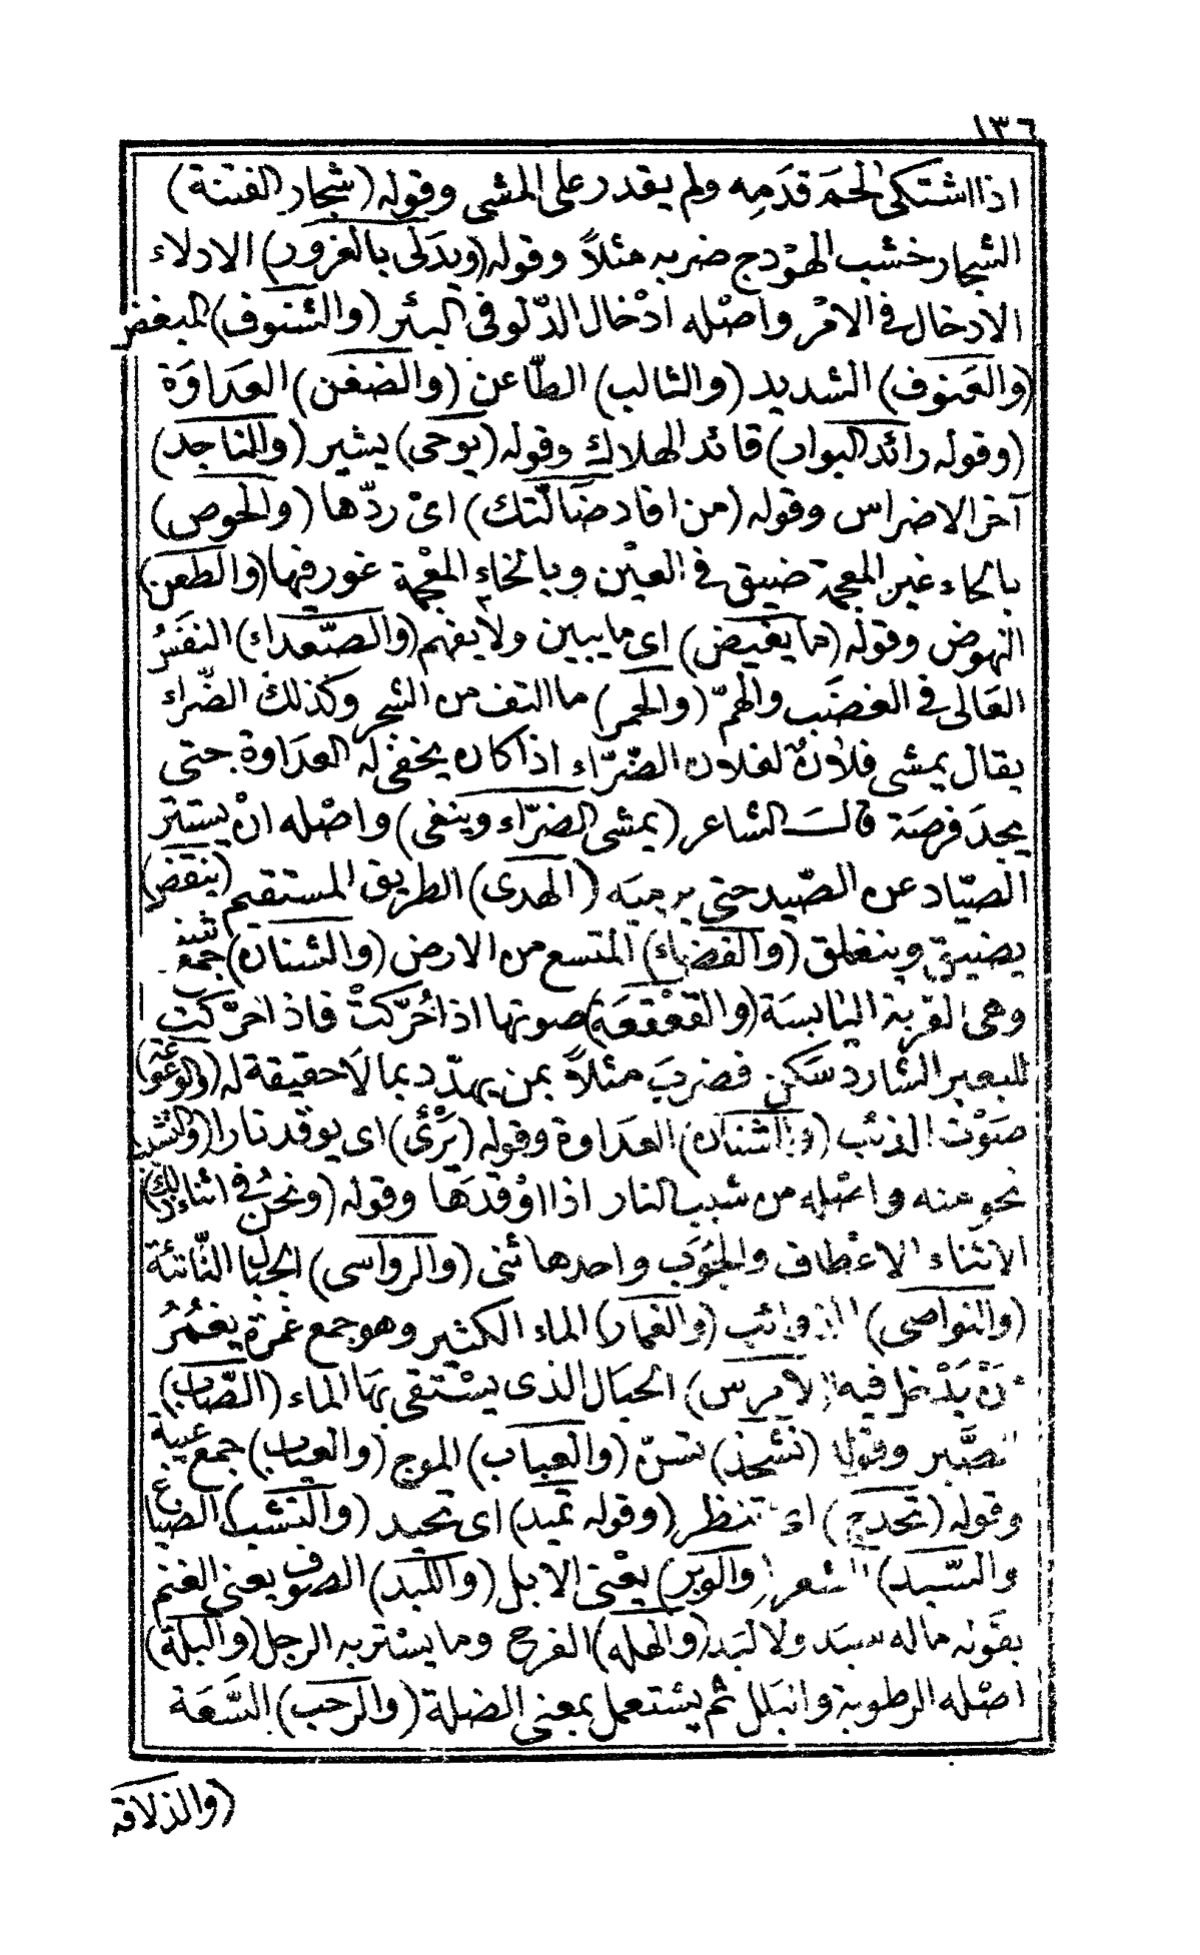 ١٣٦
اذا اشتكى لحم قدَمِه ولم يقدر على المشى وقوله (شجار الفتنة)
الشجار خشب الهوْدج ضربه مثلاً وقوله (ويدلى بالغرور) الادلاء
الادخال فى الامْر واصْله ادْخال الدّلو فى البئر (والشنوف) المبغض
(والعنوف) الشديد (والثالب) الطّاعن (والضغن) العَدَاوَة
(وقوله رائد البوار) قائد الهلاك وقوله (يوحى) يشير (والناجد)
آخر الاضراس وقوله (من افاد ضَالّتك) اىْ ردّها (والحوص)
بالحاء غير المعجمة ضيق فى العيْن وبالخاءِ المعْجمة غور فيها (والطعن)
النهوض وقوله (ما يغيض) اى ما يبين ولا يفهم (والصّعداء) النفَسُ
العَالى فى الغضَب والهمّ (والخمر) ما التف من الشجر وكذلك الضّراء
يقال يمشى فلانٌ لفلان الضّرّاء اذا كان يخفى له العدَاوة حتى
يجدَ فرصَة قالَ الشاعر (يمشى الضرّاء ويتفى) واصْله انْ يستتر
الصيّاد عن الصّيد حتى يرميَه (الهدى) الطريق المستقيم (ينقض)
يضيق وينغلق (والفضاء) المتسع من الارض (والشنان) جمع شن
وهى القربة اليابسَة (والقعْقعَة) صوتها اذا حُرّكتْ فاذا حرّكت
للبعير الشارد سَكن فضربَ مثلاً بمن يهدّد بما لَا حقيقة له (والوعوعة)
صَوْت الذئب (والشنان) العدَاوة وقوله (يَرْئ) اى يوقد نارا
نحو منه واصْله من شبب النار اذا اوْقدَها وقوله (ونحنُ فى اثناء ذلك)
الاثناء الاعْطاف والجنوب واحدها ثنى (والرواسى) الجبال النّاتئة
(والنواصى) الذوائب (والغمار) الماء الكثير وهو جمع غمرة يغمُرُ
مَنْ يَدْخل فيه (الامرس) الحبال الذى يسْتقى بهَا الماء (الصّاب)
الصَّبر وقوله (نشحذ) نسنّ (والعباب) الموج (والعياب) جمع عيبة
وقوله (تحدج) اى تنظر (وقوله تميد) اى تحيد (والنشب) الضياع
والسّبد) الشعر (والوبر) يعْنى الابل (واللبد) الصوف يعنى الغنم
بقوله ماله سبد ولا لبَد (والهله) الفرج وما يستر به الرجل (والبلة)
اصْله الرطوبة والبلل ثم يسْتعمل بمعنى الضلة (والرحب) السَّعَة
(والذلاقة